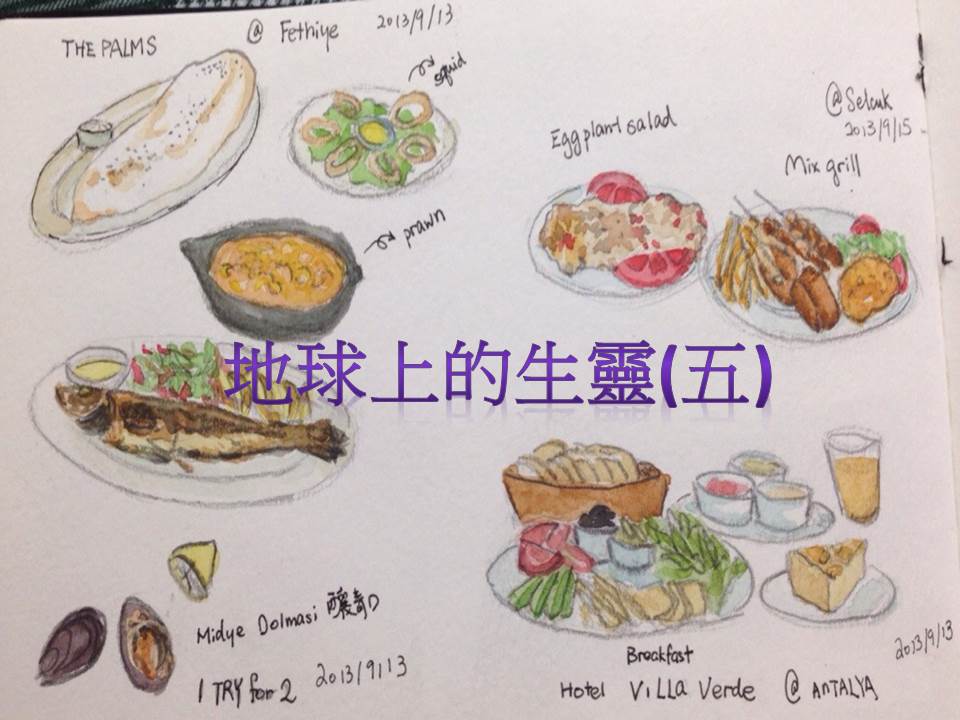 THE PALMS @ Fethiye 2013/9/13
squid
prawn
Eggplant salad
@ Selcuk
2013/9/15
Mix grill
地球上的生靈(五)
Midye Dolmasi 釀青口
1 TRY for 2 2013/9/13
Breakfast
Hotel Villa Verde @ ANTALYA
2013/9/13